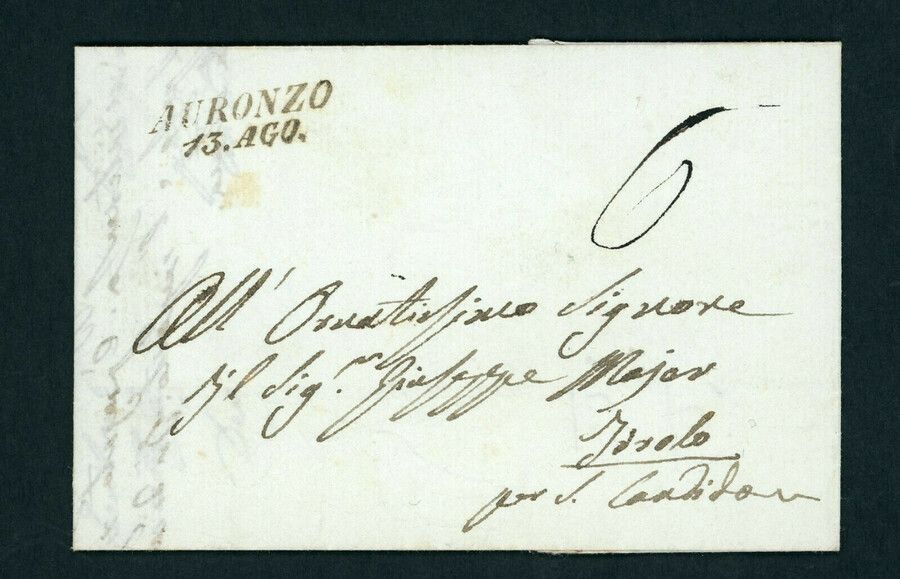 AURONZO
13. AGO.
6
All' Ornatissimo Signore
Il Sig.r Giuseppe Majer
Tirolo
per S. Candido